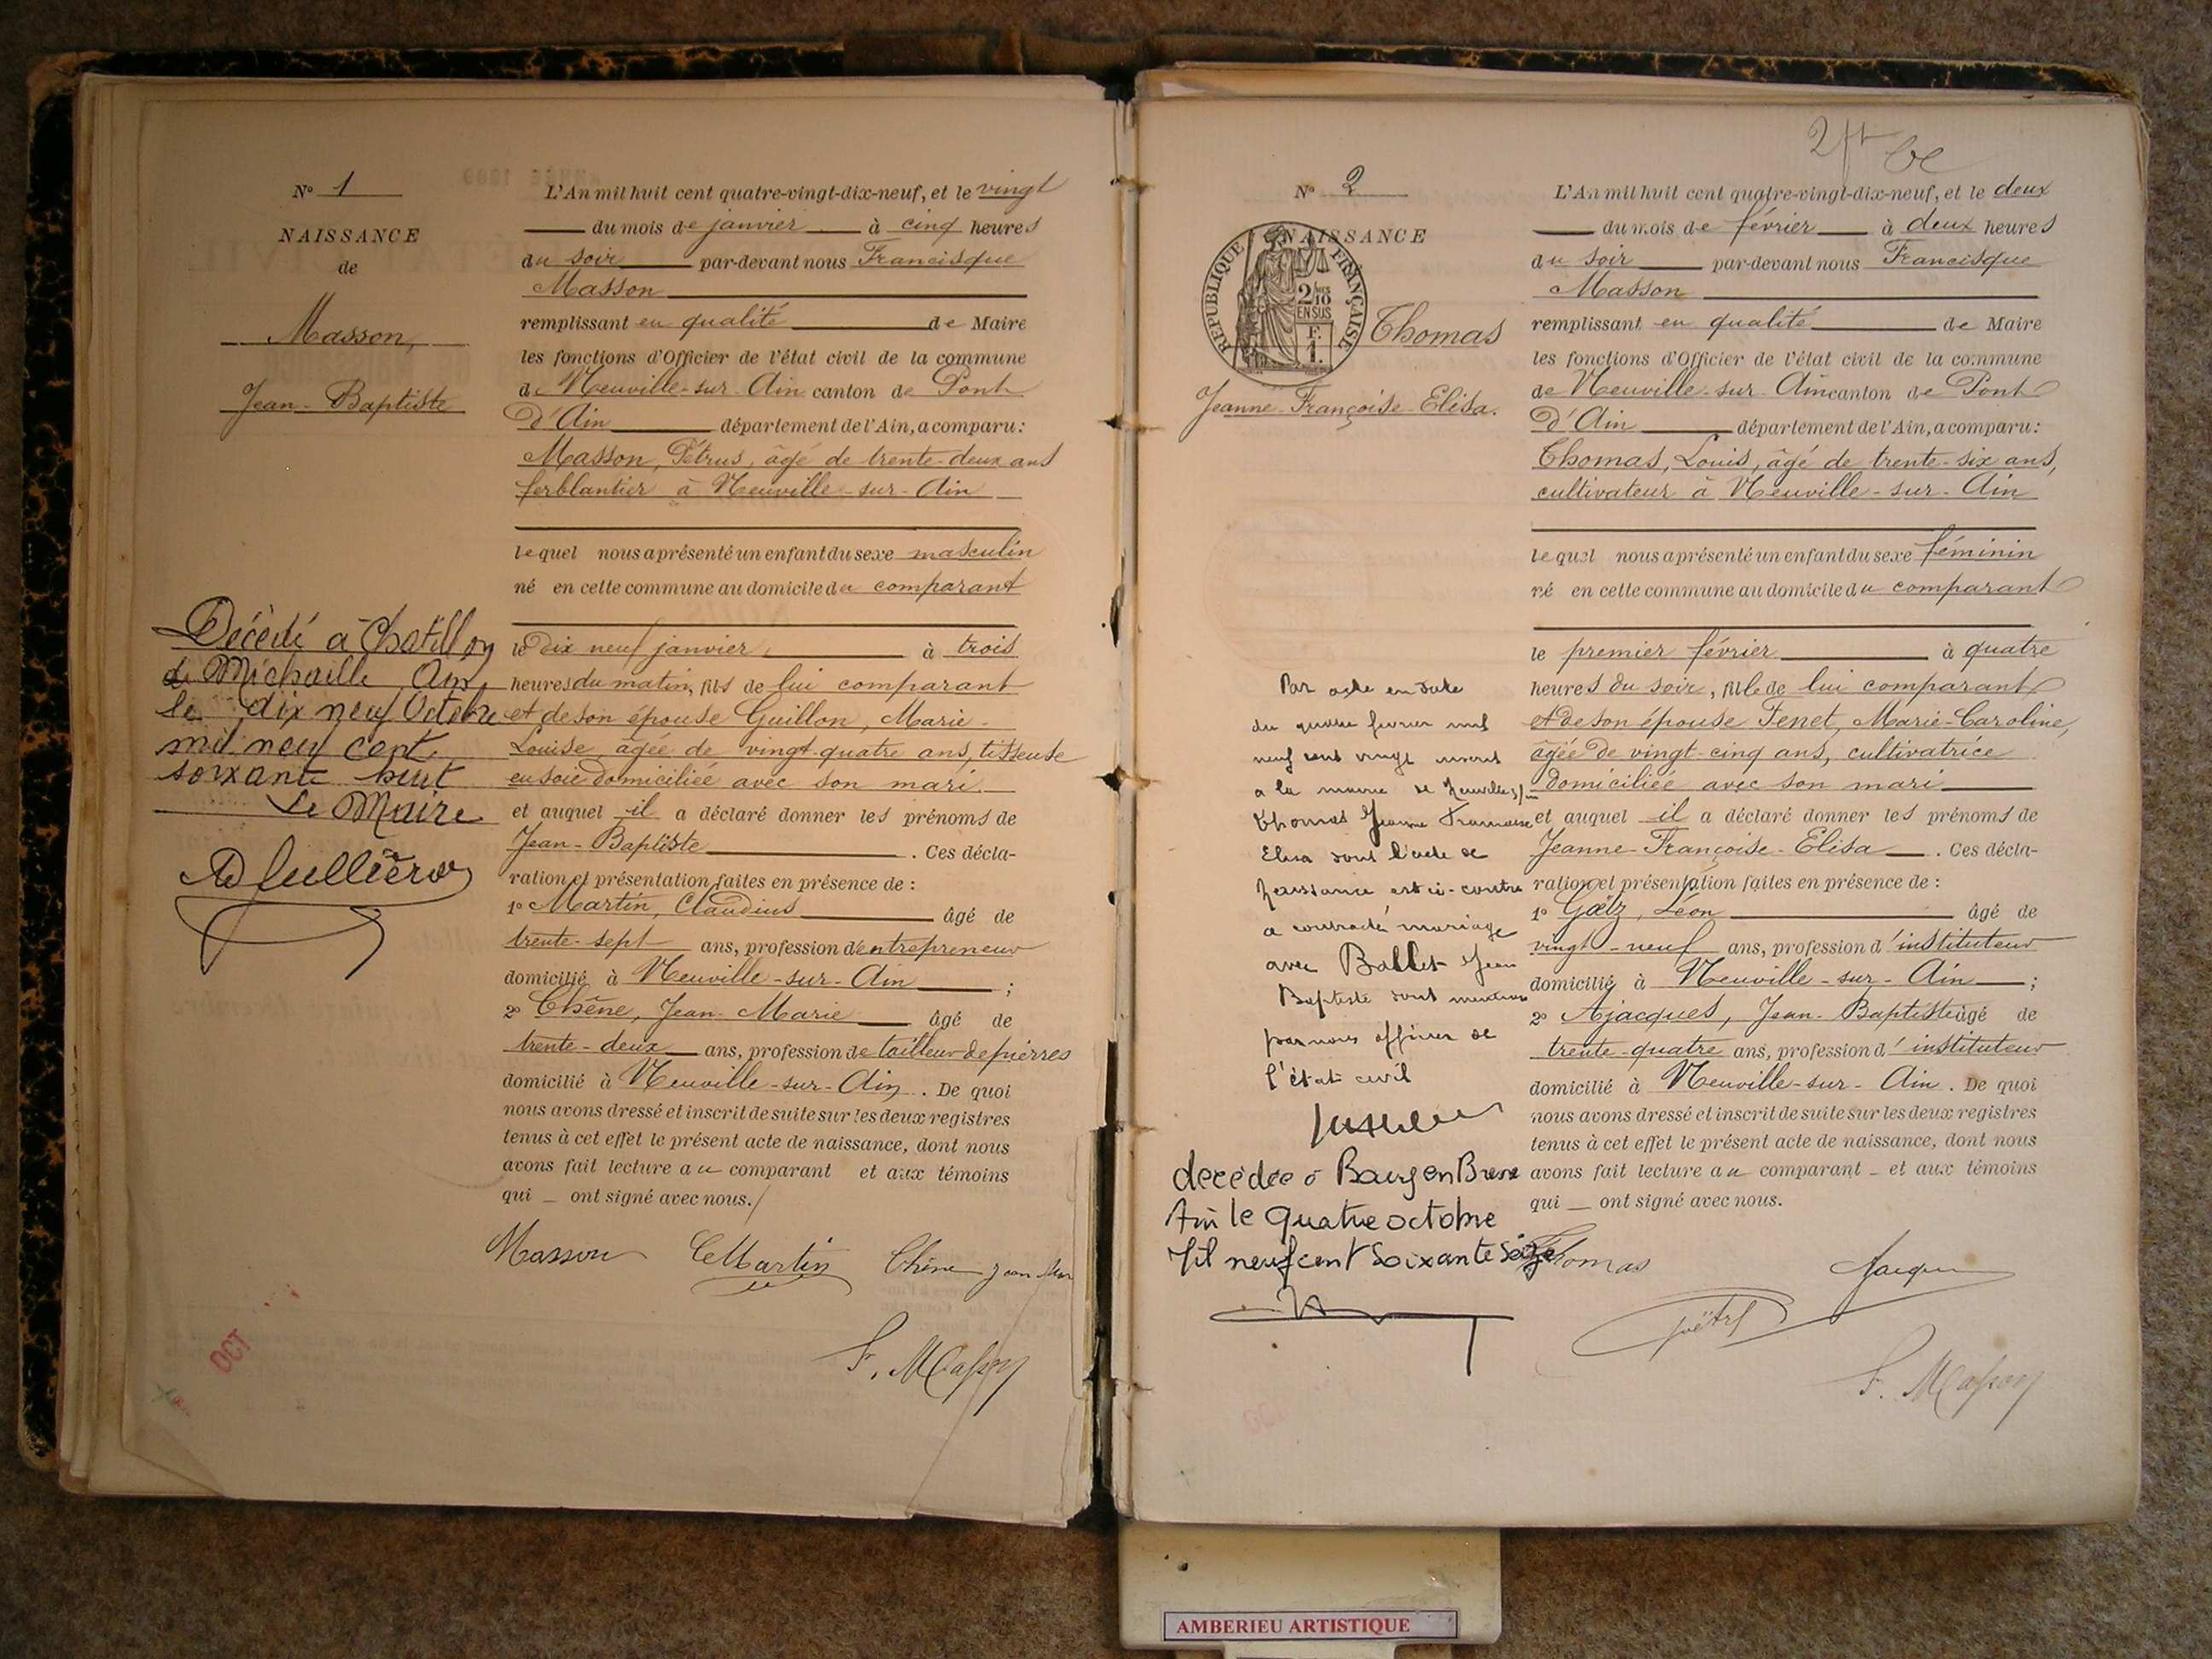 N° 1
NAISSANCE
de
Masson,
Jean-Baptiste
L'An mil huit cent quatre-vingt-dix-neuf, et le vingt
du mois de janvier à cinq heures
du soir par-devant nous Francisque
Masson
remplissant en qualité de Maire
les fonctions d'Officier de l'état civil de la commune
de Neuville-sur-Ain canton de Pont
d'Ain département de l'Ain, a comparu:
Masson, Pétrus, âgé de trente-deux ans
ferblantier à Neuville-sur-Ain
lequel nous a présenté un enfant du sexe masculin
né en cette commune au domicile du comparant
le dix neuf janvier à trois
heures du matin, fils de lui comparant
et de son épouse Guillon, Marie-
Louise âgée de vingt-quatre ans, tisseuse
en soie domiciliée avec son mari.
et auquel il a déclaré donner les prénoms de
Jean-Baptiste. Ces décla-
ration et présentation faites en présence de :
1° Martin, Claudius âgé de
trente-sept ans, profession d'entrepreneur
domicilié à Neuville-sur-Ain ;
2° Chêne, Jean-Marie âgé de
trente-deux ans, profession de tailleur de pierres
domicilié à Neuville-sur-Ain. De quoi
nous avons dressé et inscrit de suite sur les deux registres
tenus à cet effet le présent acte de naissance, dont nous
avons fait lecture au comparant et aux témoins
qui ont signé avec nous.
Décédé à Chatillon
de Michaille Ain,
le dix neuf Octobre
mil neuf cent
soixante huit
Le Maire
Masson Cl Martin Chêne Jean
F. Masson
OCT
2 ft
N° 2
NAISSANCE
REPUBLIQUE FRANÇAISE
2/10
EN SUS
F.
1.
Thomas
Jeanne-Françoise-Elisa.
L'An mil huit cent quatre-vingt-dix-neuf, et le deux
du mois de février à deux heures
du soir par-devant nous Francisque
Masson
remplissant en qualité de Maire
les fonctions d'Officier de l'état civil de la commune
de Neuville-sur-Ain canton de Pont
d'Ain département de l'Ain, a comparu:
Thomas, Louis, âgé de trente-six ans,
cultivateur à Neuville-sur-Ain
lequel nous a présenté un enfant du sexe féminin
né en cette commune au domicile du comparant
le premier février à quatre
heures du soir, fille de lui comparant
et de son épouse Tenet, Marie-Caroline,
âgée de vingt-cinq ans, cultivatrice
domiciliée avec son mari
et auquel il a déclaré donner les prénoms de
Jeanne-Françoise-Elisa. Ces décla-
ration et présentation faites en présence de :
1° Goetz, Léon âgé de
vingt-neuf ans, profession d'instituteur
domicilié à Neuville-sur-Ain ;
2° Ajacques, Jean-Baptiste âgé de
trente-quatre ans, profession d'instituteur
domicilié à Neuville-sur-Ain. De quoi
nous avons dressé et inscrit de suite sur les deux registres
tenus à cet effet le présent acte de naissance, dont nous
avons fait lecture au comparant et aux témoins
qui ont signé avec nous.
Par acte en date
du février mil
neuf cent vingt inscrit
a la mairie de Neuville s/
Thomas Jeanne Francoise
Elisa dont l'acte de
naissance est ci-contre
a contracté mariage
avec Ballet Jean
Baptiste dont mention
par nous officier de
l'état civil
décédée à Bourg en Bresse
Ain le quatre octobre
Mil neuf cent soixante seize
Thomas
F. Masson
AMBERIEU ARTISTIQUE